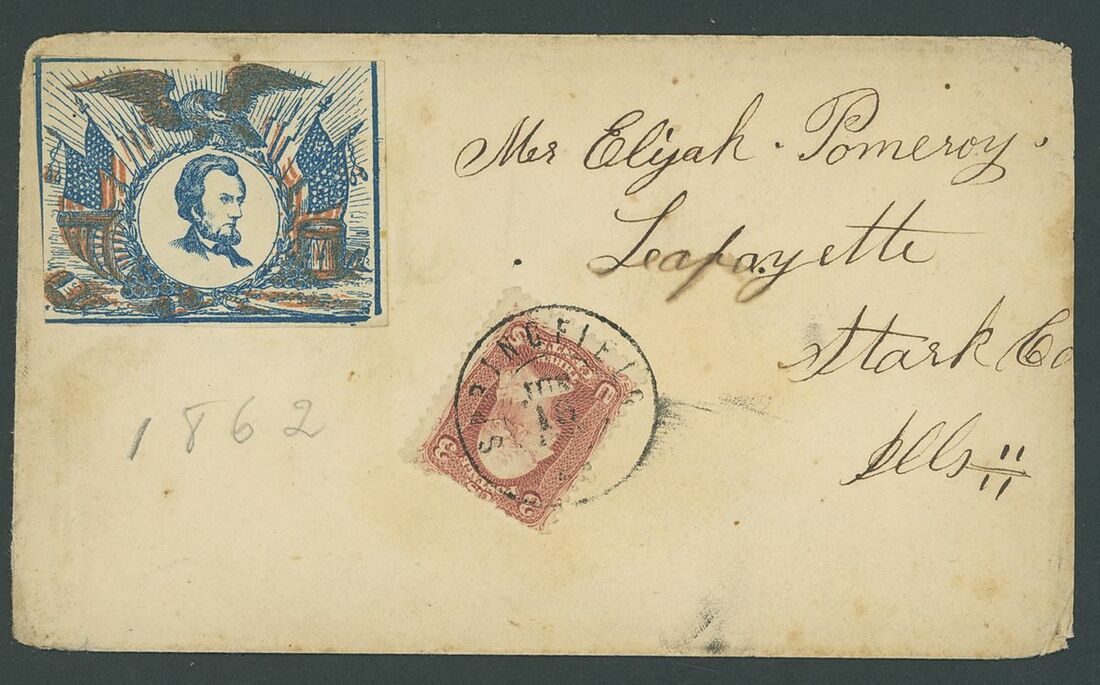 Mr Elijah Pomeroy.
Leafayette
Stark Co
Ills
SPRINGFIELD
1862